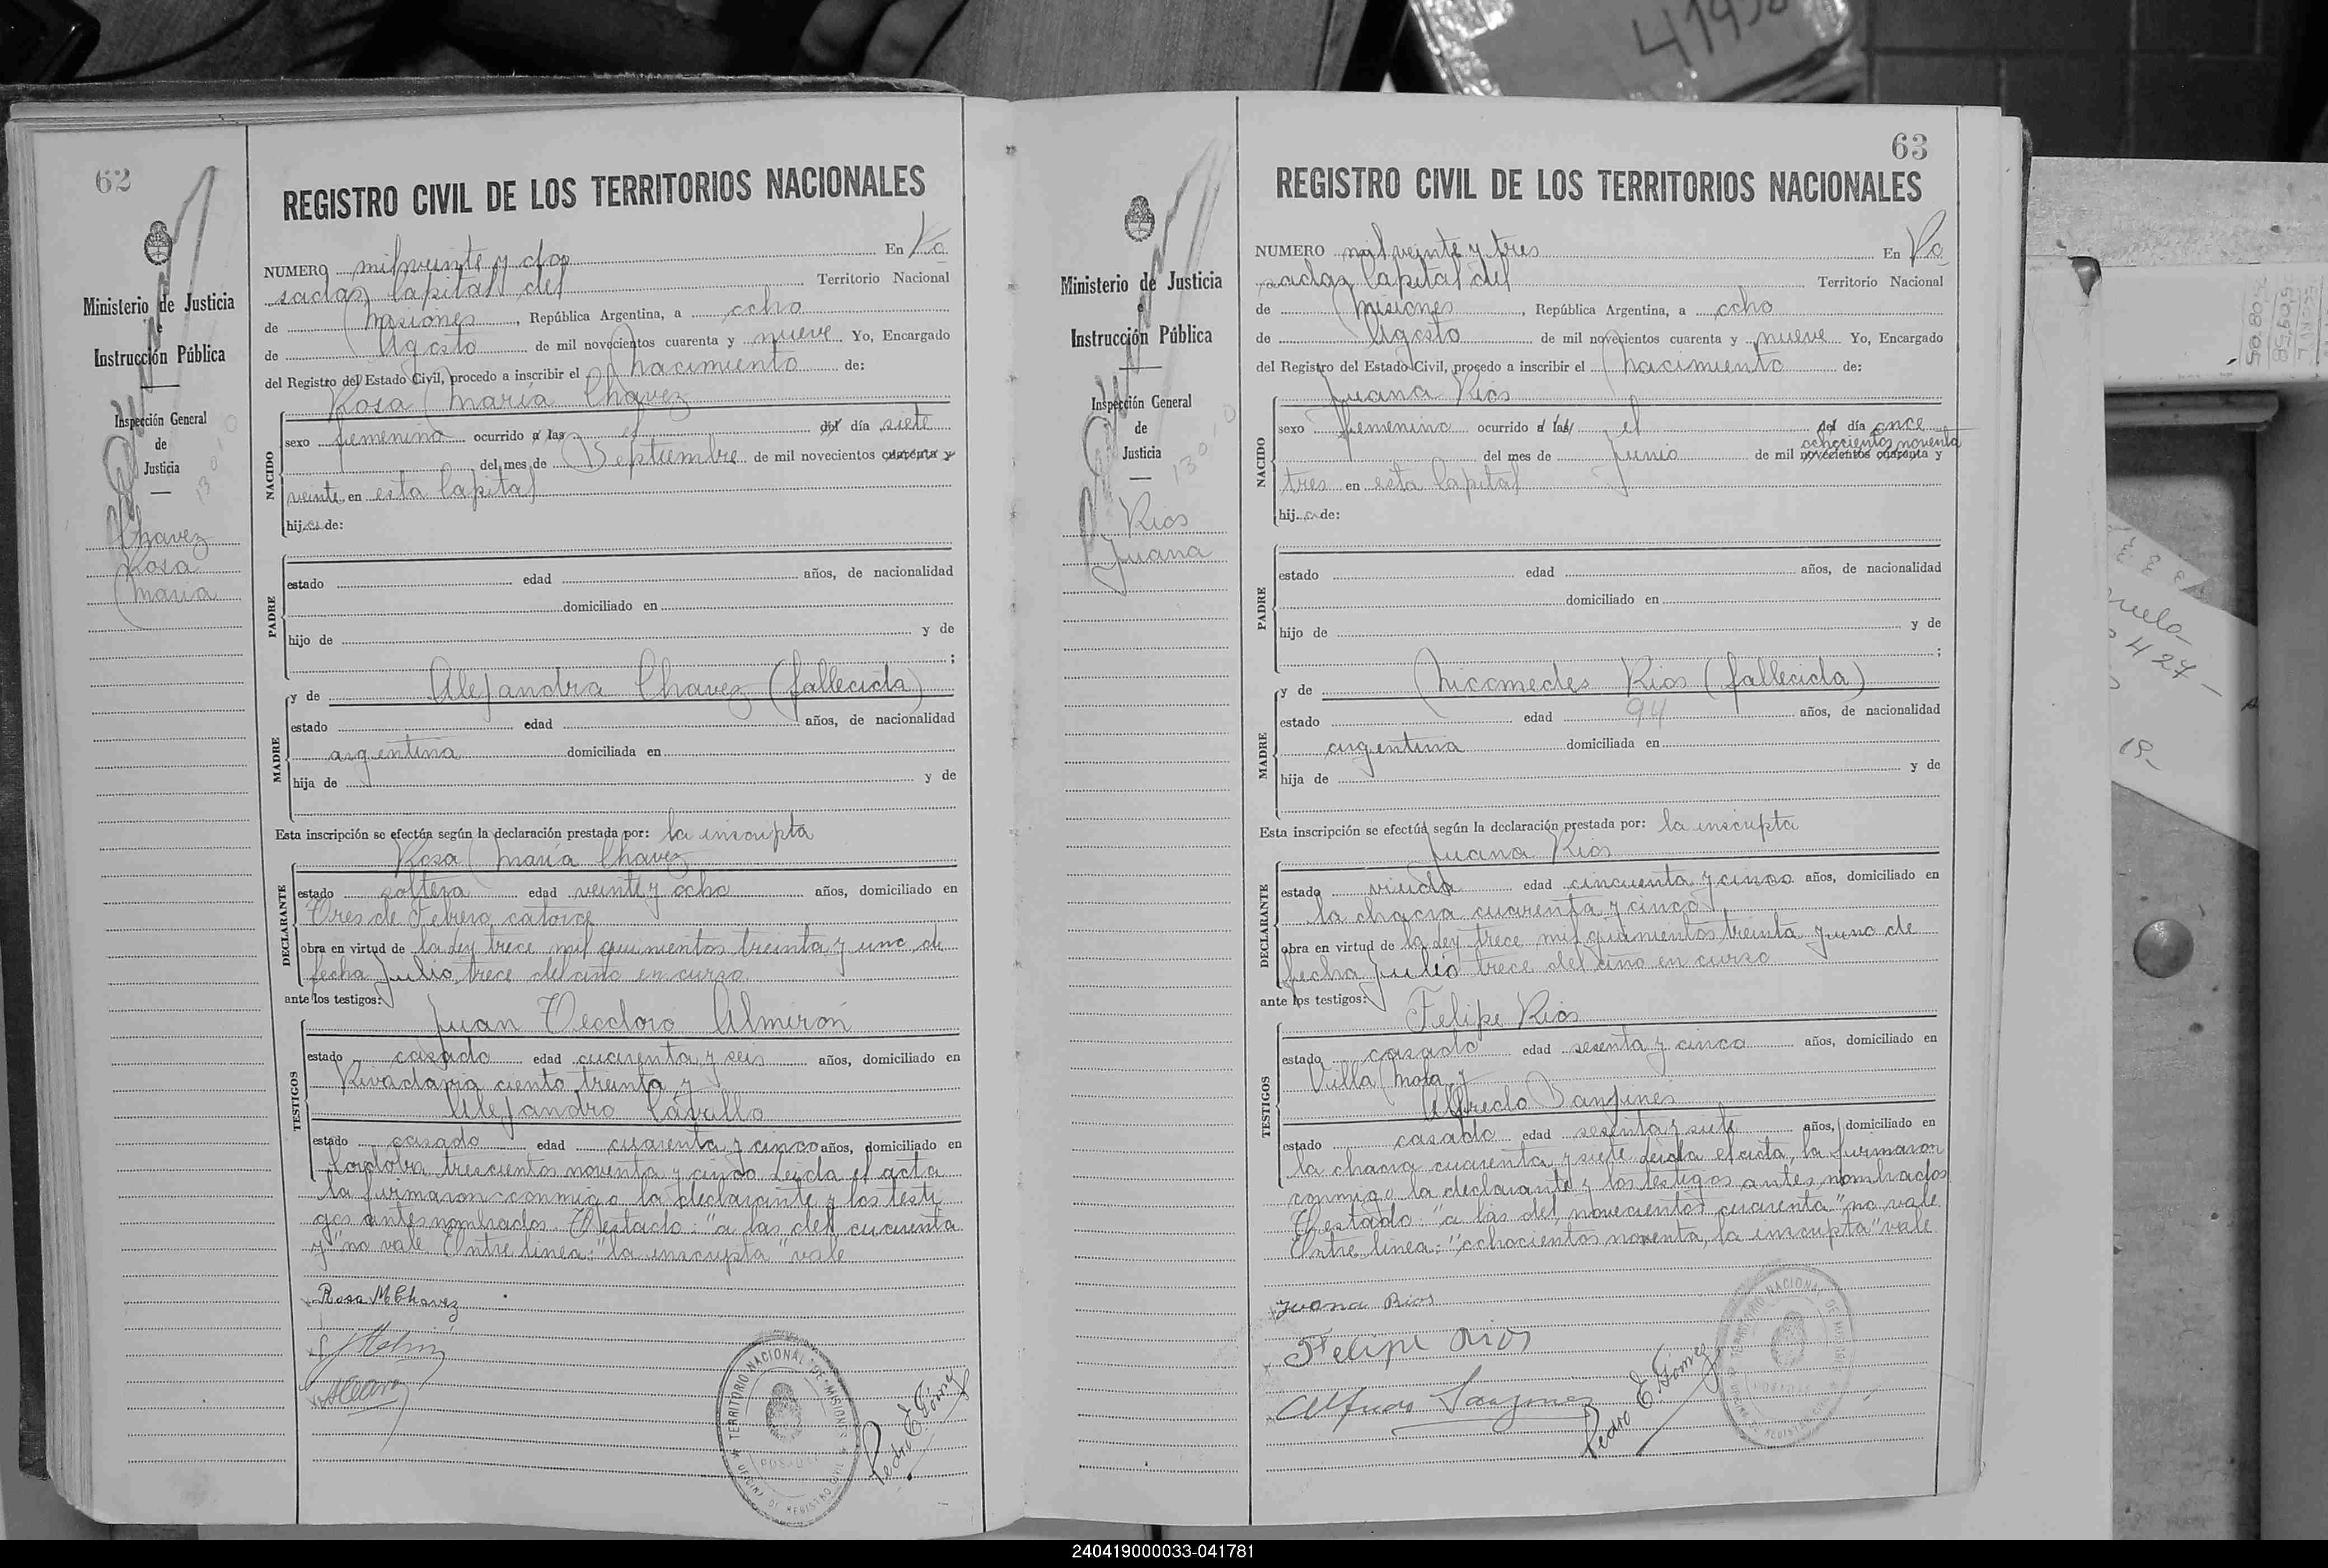 62
REGISTRO CIVIL DE LOS TERRITORIOS NACIONALES
NUMERO mil veinte y dos En Po
sadas Capital del Territorio Nacional
de Misiones, República Argentina, a ocho
de Agosto de mil novecientos cuarenta y nueve Yo, Encargado
del Registro del Estado Civil, procedo a inscribir el Nacimiento de:
Rosa Maria Chavez
NACIDO
sexo femenino ocurrido a las el del día siete
del mes de Septiembre de mil novecientos cuarenta y
veinte en esta Capital
hija de:
PADRE
estado edad años, de nacionalidad
domiciliado en
hijo de y de
;
y de Alejandra Chavez (fallecida)
MADRE
estado edad años, de nacionalidad
argentina domiciliada en
hija de y de
Esta inscripción se efectúa según la declaración prestada por: la inscripta
Rosa Maria Chavez
DECLARANTE
estado soltera edad veinte y ocho años, domiciliado en
Tres de Febrero catorce
obra en virtud de la ley trece mil quinientos treinta y uno de
fecha Julio trece del año en curso
ante los testigos:
Juan Teodoro Almirón
TESTIGOS
estado casado edad cuarenta y seis años, domiciliado en
Rivadavia ciento treinta y
Alejandro Carullo
estado casado edad cuarenta y cinco años, domiciliado en
Cordoba trescientos noventa y cinco Leida el acta
la firmaron conmigo la declarante y los testi
gos antes nombrados. Testado: "a las del cuarenta
y" no vale Entre linea: "la inscripta" vale
Rosa M Chavez
Pedro E. Gómez
TERRITORIO NACIONAL DE MISIONES
OFICINA DE REGISTRO CIVIL
POSADAS
Ministerio de Justicia
e
Instrucción Pública
Inspección General
de
Justicia
Chavez
Rosa
Maria
63
REGISTRO CIVIL DE LOS TERRITORIOS NACIONALES
NUMERO mil veinte y tres En Po
sadas Capital del Territorio Nacional
de Misiones, República Argentina, a ocho
de Agosto de mil novecientos cuarenta y nueve Yo, Encargado
del Registro del Estado Civil, procedo a inscribir el Nacimiento de:
Juana Rios
NACIDO
sexo femenino ocurrido a las el del día once
ochocientos noventa
del mes de Junio de mil novecientos cuarenta y
tres en esta Capital
hija de:
PADRE
estado edad años, de nacionalidad
domiciliado en
hijo de y de
;
y de Nicomedes Rios (fallecida)
MADRE
estado edad 94 años, de nacionalidad
argentina domiciliada en
hija de y de
Esta inscripción se efectúa según la declaración prestada por: la inscripta
Juana Rios
DECLARANTE
estado viuda edad cincuenta y cinco años, domiciliado en
la chacra cuarenta y cinco
obra en virtud de la ley trece mil quinientos treinta y uno de
fecha Julio trece del año en curso
ante los testigos:
Felipe Rios
TESTIGOS
estado casado edad sesenta y cinco años, domiciliado en
Villa Mola y
Alfredo Sanjines
estado casado edad sesenta y siete años, domiciliado en
la chacra cuarenta y siete Leida el acta, la firmaron
conmigo la declarante y los testigos antes nombrados
Testado: "a las del, novecientos cuarenta" no vale
Entre linea: "ochocientos noventa, la inscripta" vale
Juana Rios
Felipe Rios
Alfredo Sanjines
Pedro E. Gómez
TERRITORIO NACIONAL DE MISIONES
Ministerio de Justicia
e
Instrucción Pública
Inspección General
de
Justicia
Rios
Juana
240419000033-041781